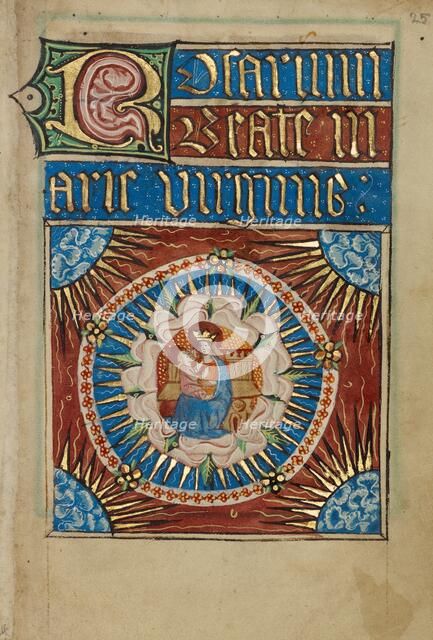 25
Rosarium
Beate m
arie virginis:
Heritage Heritage
Heritage Heritage
Heritage Heritage
Heritage Heritage